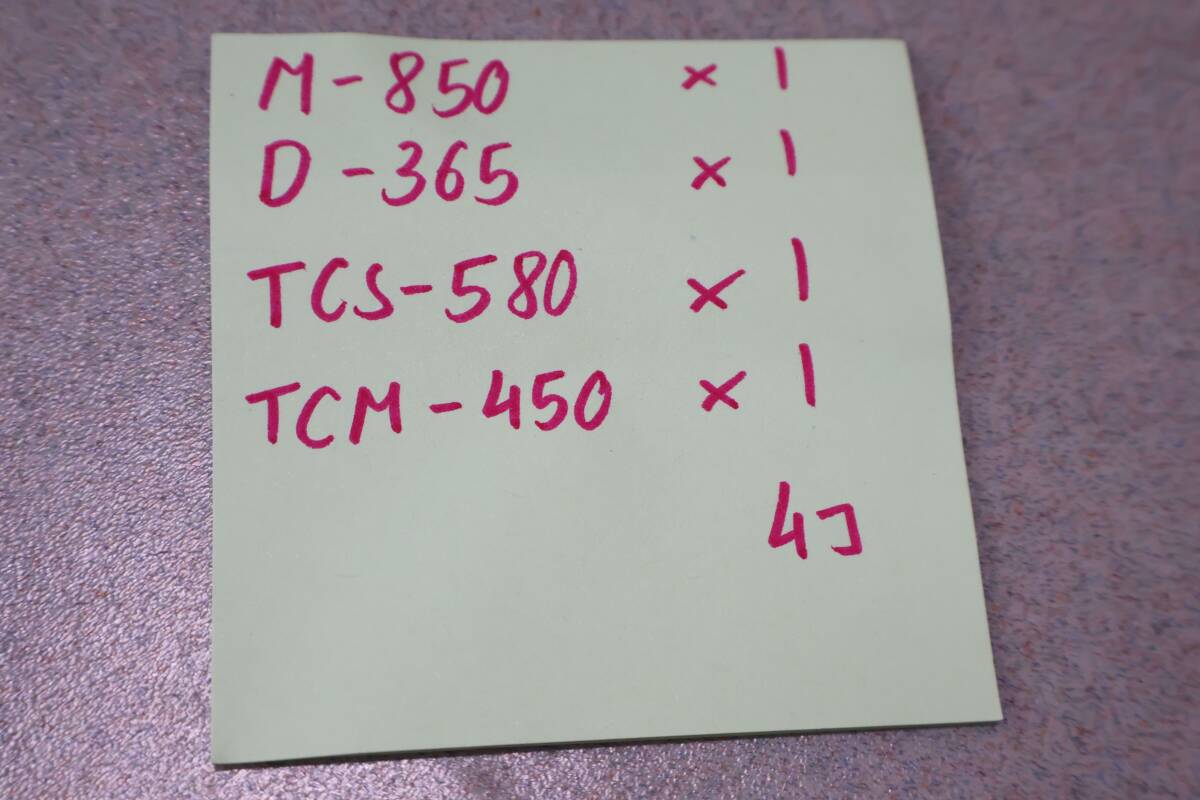 M-850 × 1
D-365 × 1
TCS-580 × 1
TCM-450 × 1
4コ